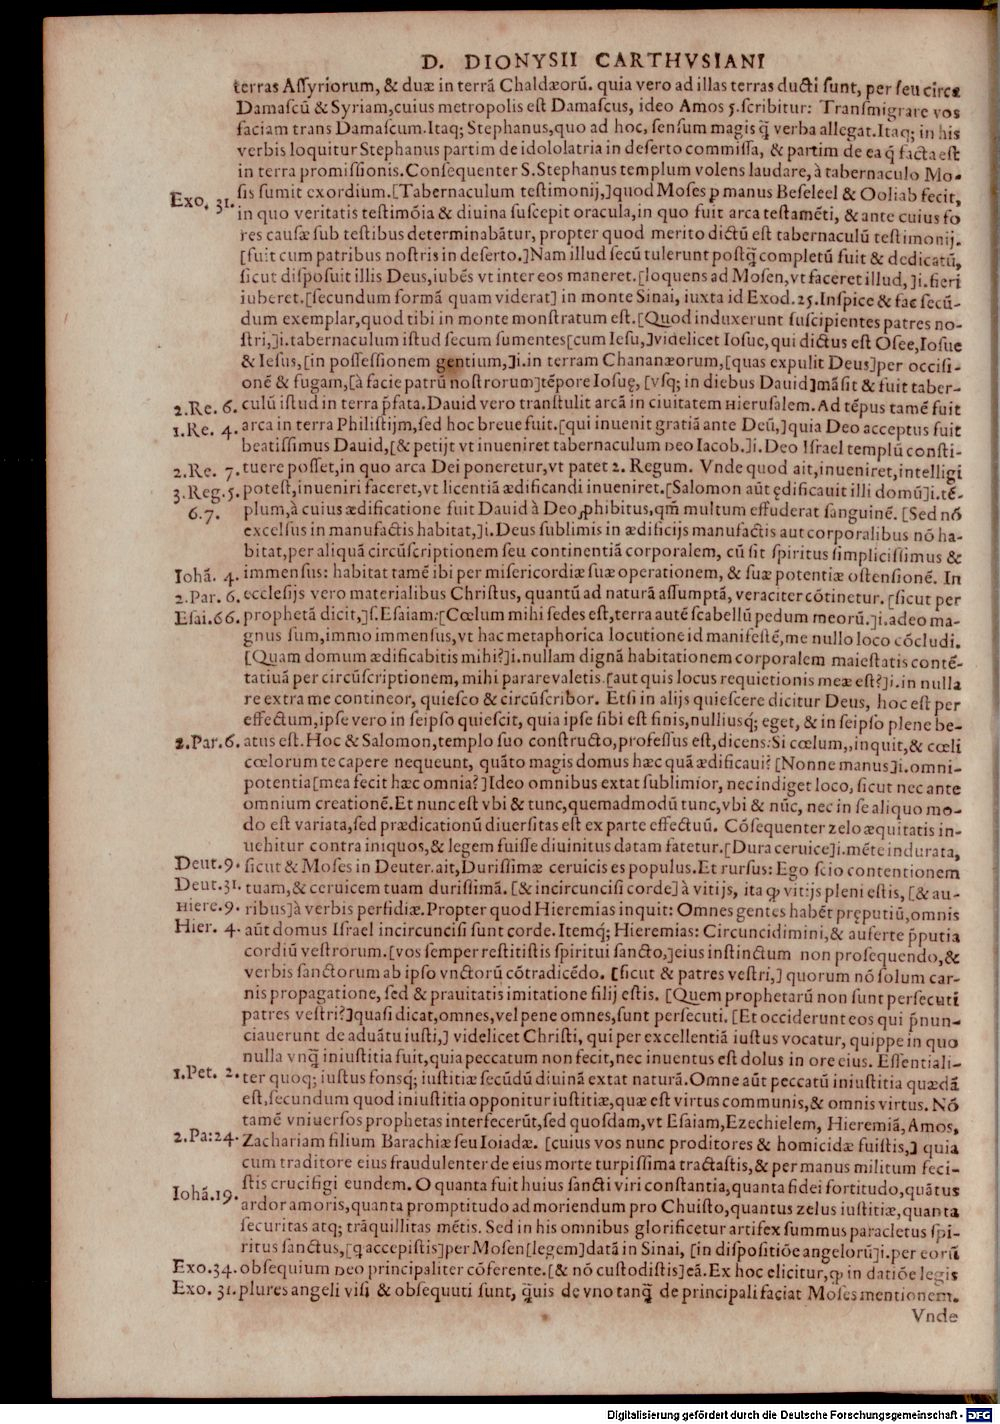 D. DIONYSII CARTHVSIANI
terras Aſſyriorum, & duæ in terrã Chaldæorũ. quia vero ad illas terras ducti ſunt, per ſeu circa
Damaſcũ & Syriam, cuius metropolis eſt Damaſcus, ideo Amos 5. ſcribitur: Tranſmigrare vos
faciam trans Damaſcum. Itaq; Stephanus, quo ad hoc, ſenſum magis q̃ verba allegat. Itaq; in his
verbis loquitur Stephanus partim de idololatria in deſerto commiſſa, & partim de ea q̃ facta eſt
in terra promiſſionis. Conſequenter S. Stephanus templum volens laudare, à tabernaculo Mo-
Exo. 31. ſis ſumit exordium. [Tabernaculum teſtimonij,] quod Moſes ꝑ manus Beſeleel & Ooliab fecit,
in quo veritatis teſtimõia & diuina ſuſcepit oracula, in quo fuit arca teſtamẽti, & ante cuius fo
res cauſæ ſub teſtibus determinabãtur, propter quod merito dictũ eſt tabernaculũ teſtimonij.
[fuit cum patribus noſtris in deſerto.] Nam illud ſecũ tulerunt poſtq̃ completũ fuit & dedicatũ,
ſicut diſpoſuit illis Deus, iubẽs vt inter eos maneret. [loquens ad Moſen, vt faceret illud,] i. fieri
iuberet. [ſecundum formã quam viderat] in monte Sinai, iuxta id Exod. 25. Inſpice & fac ſecũ-
dum exemplar, quod tibi in monte monſtratum eſt. [Quod induxerunt ſuſcipientes patres no-
ſtri,] i. tabernaculum iſtud ſecum ſumentes [cum Ieſu,] videlicet Ioſue, qui dictus eſt Oſee, Ioſue
& Ieſus, [in poſſeſſionem gentium,] i. in terram Chananæorum, [quas expulit Deus] per occiſi-
onẽ & fugam, [à facie patrũ noſtrorum] tẽpore Ioſuę, [vſq; in diebus Dauid] mãſit & fuit taber-
2. Re. 6. culũ iſtud in terra p̃fata. Dauid vero tranſtulit arcã in ciuitatem Hieruſalem. Ad tẽpus tamẽ fuit
1. Re. 4. arca in terra Philiſtijm, ſed hoc breue fuit. [qui inuenit gratiã ante Deũ,] quia Deo acceptus fuit
beatiſſimus Dauid, [& petijt vt inueniret tabernaculum DEO Iacob.] i. Deo Iſrael templũ conſti-
2. Re. 7. tuere poſſet, in quo arca Dei poneretur, vt patet 2. Regum. Vnde quod ait, inueniret, intelligi
3. Reg. 5. poteſt, inueniri faceret, vt licentiã ædificandi inueniret. [Salomon aũt ędificauit illi domũ] i. tẽ-
6. 7. plum, à cuius ædificatione fuit Dauid à Deo ꝓhibitus, qm̃ multum effuderat ſanguinẽ. [Sed nõ
excelſus in manufactis habitat,] i. Deus ſublimis in ædificijs manufactis aut corporalibus nõ ha-
bitat, per aliquã circũſcriptionem ſeu continentiã corporalem, cũ ſit ſpiritus ſimpliciſſimus &
Iohã. 4. immenſus: habitat tamẽ ibi per miſericordiæ ſuæ operationem, & ſuæ potentiæ oſtenſionẽ. In
2. Par. 6. eccleſijs vero materialibus Chriſtus, quantũ ad naturã aſſumptã, veraciter cõtinetur. [ſicut per
Eſai. 66. prophetã dicit,] ſ. Eſaiam: [Cœlum mihi ſedes eſt, terra autẽ ſcabellũ pedum meorũ.] i. adeo ma-
gnus ſum, immo immenſus, vt hac metaphorica locutione id manifeſtẽ, me nullo loco cõcludi.
[Quam domum ædificabitis mihi?] i. nullam dignã habitationem corporalem maieſtatis contẽ-
tatiuã per circũſcriptionem, mihi parare valetis. [aut quis locus requietionis meæ eſt?] i. in nulla
re extra me contineor, quieſco & circũſcribor. Etſi in alijs quieſcere dicitur Deus, hoc eſt per
effectum, ipſe vero in ſeipſo quieſcit, quia ipſe ſibi eſt finis, nulliusq; eget, & in ſeipſo plene be-
2. Par. 6. atus eſt. Hoc & Salomon, templo ſuo conſtructo, profeſſus eſt, dicens: Si cœlum,, inquit, & cœli
cœlorum te capere nequeunt, quãto magis domus hæc quã ædificaui? [Nonne manus] i. omni-
potentia [mea fecit hæc omnia?] Ideo omnibus extat ſublimior, nec indiget loco, ſicut nec ante
omnium creationẽ. Et nunc eſt vbi & tunc, quemadmodũ tunc, vbi & nũc, nec in ſe aliquo mo-
do eſt variata, ſed prædicationũ diuerſitas eſt ex parte effectuũ. Cõſequenter zelo æquitatis in-
uehitur contra iniquos, & legem fuiſſe diuinitus datam fatetur. [Dura ceruice] i. mẽte indurata,
Deut. 9. ſicut & Moſes in Deuter. ait, Duriſſimæ ceruicis es populus. Et rurſus: Ego ſcio contentionem
Deut. 31. tuam, & ceruicem tuam duriſſimã. [& incircunciſi corde] à vitijs, ita ꝙ vitijs pleni eſtis, [& au-
Hiere. 9. ribus] à verbis perfidiæ. Propter quod Hieremias inquit: Omnes gentes habẽt pręputiũ, omnis
Hier. 4. aũt domus Iſrael incircunciſi ſunt corde. Itemq; Hieremias: Circuncidimini, & auferte p̃putia
cordiũ veſtrorum. [vos ſemper reſtitiſtis ſpiritui ſancto,] eius inſtinctum non proſequendo, &
verbis ſanctorum ab ipſo vnctorũ cõtradicẽdo. [ſicut & patres veſtri,] quorum nõ ſolum car-
nis propagatione, ſed & prauitatis imitatione filij eſtis. [Quem prophetarũ non ſunt perſecuti
patres veſtri?] quaſi dicat, omnes, vel pene omnes, ſunt perſecuti. [Et occiderunt eos qui p̃nun-
ciauerunt de aduãtu iuſti,] videlicet Chriſti, qui per excellentiã iuſtus vocatur, quippe in quo
nulla vnq̃ iniuſtitia fuit, quia peccatum non fecit, nec inuentus eſt dolus in ore eius. Eſſentiali-
1. Pet. 2. ter quoq; iuſtus fonsq; iuſtitiæ ſecũdũ diuinã extat naturã. Omne aũt peccatũ iniuſtitia quædã
eſt, ſecundum quod iniuſtitia opponitur iuſtitiæ, quæ eſt virtus communis, & omnis virtus. Nõ
tamẽ vniuerſos prophetas interfecerũt, ſed quoſdam, vt Eſaiam, Ezechielem, Hieremiã, Amos,
2. Pa: 24. Zachariam filium Barachiæ ſeu Ioiadæ. [cuius vos nunc proditores & homicidæ fuiſtis,] quia
cum traditore eius fraudulenter de eius morte turpiſſima tractaſtis, & per manus militum feci-
ſtis crucifigi eundem. O quanta fuit huius ſancti viri conſtantia, quanta fidei fortitudo, quãtus
Iohã. 19. ardor amoris, quanta promptitudo ad moriendum pro Chuiſto, quantus zelus iuſtitiæ, quanta
ſecuritas atq; trãquillitas mẽtis. Sed in his omnibus glorificetur artifex ſummus paracletus ſpi-
ritus ſanctus, [q accepiſtis] per Moſen [legem] datã in Sinai, [in diſpoſitiõe angelorũ] i. per eorũ
Exo. 34. obſequium DEO principaliter cõferente. [& nõ cuſtodiſtis] eã. Ex hoc elicitur, ꝙ in datiõe legis
Exo. 31. plures angeli viſi & obſequuti ſunt, q̃uis de vno tanq̃ de principali faciat Moſes mentionem.
Vnde
Digitalisierung gefördert durch die Deutsche Forschungsgemeinschaft - DFG